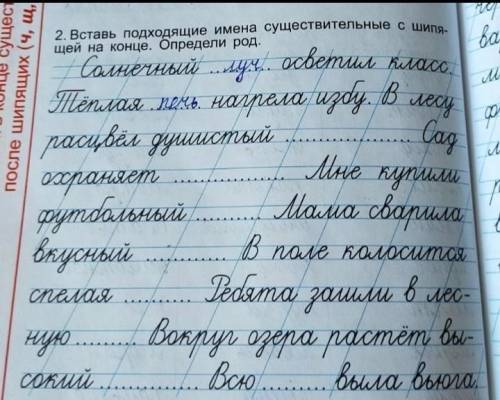 в конце сущест
после шипящих (ч, щ,
2. Вставь подходящие имена существительные с шипя-
щей на конце. Определи род.
Солнечный ..луч.. осветил класс.
Тёплая .печь. нагрела избу. В лесу
расцвёл душистый .............. Сад
охраняет .............. Мне купили
футбольный .......... Мама сварила
вкусный ............ В поле колосится
спелая ........... Ребята зашли в лес-
ную ......... Вокруг озера растёт вы-
сокий ........... Всю ....... выла вьюга.